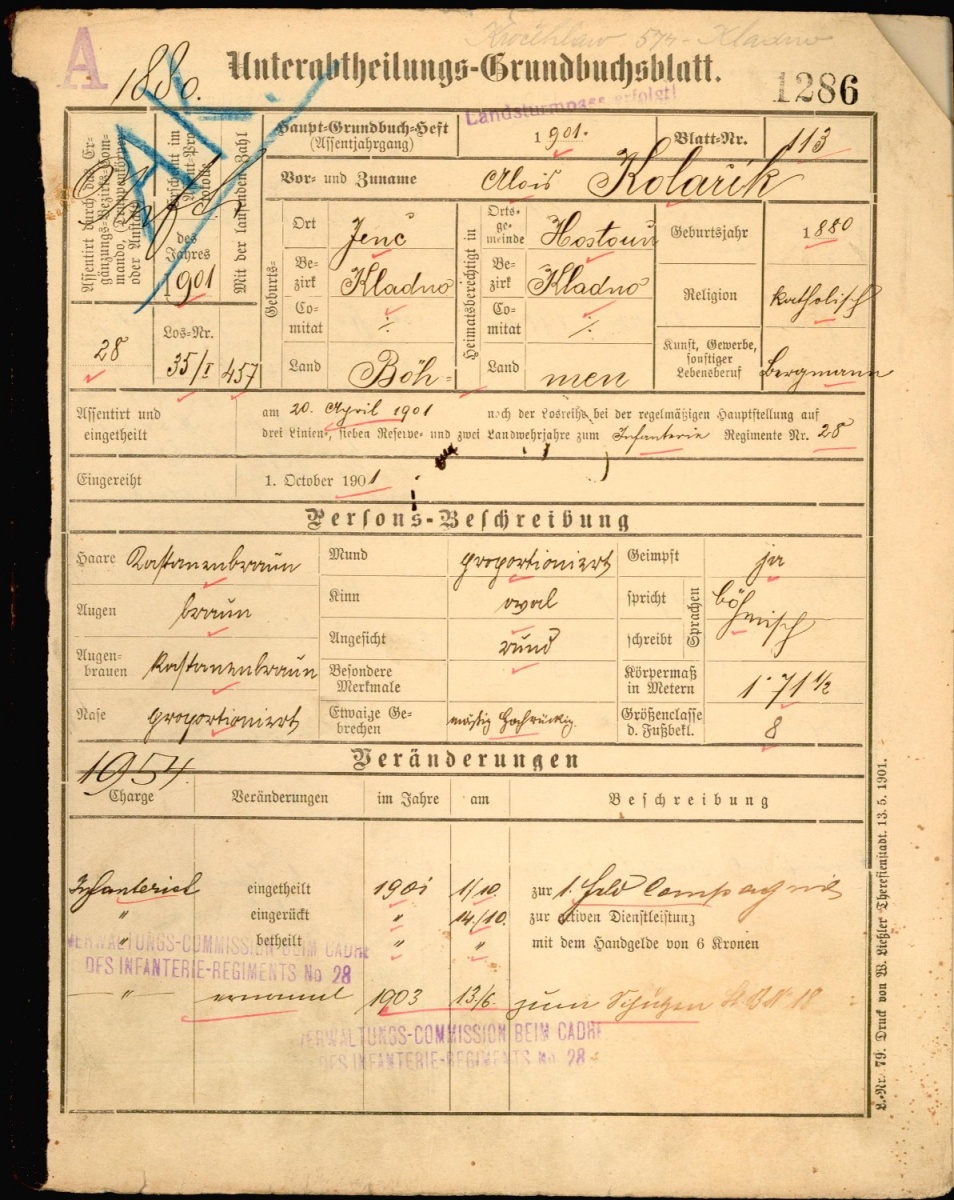 Kročehlaw 574 - Kladno
A
1880.
Unterabtheilungs-Grundbuchsblatt.
1286
Landsturmpass erfolgt!
AK
Assentirt durch das Ergänzungs-Bezirks-Commando, Truppenkörper oder Anstalt
28
Verzeichnet im Assent-Protokolle
des Jahres
1901
Mit der laufenden Zahl
Los-Nr.
35/I
457
Haupt-Grundbuch-Heft
(Assentjahrgang)
1901.
Blatt-Nr.
113
Vor- und Zuname
Alois Kolařík
Geburts-
Ort
Jenč
Bezirk
Kladno
Comitat
./.
Land
Böh-
Heimatsberechtigt in
Ortsgemeinde
Hostouň
Bezirk
Kladno
Comitat
./.
Land
men
Geburtsjahr
1880
Religion
katholisch
Kunst, Gewerbe, sonstiger Lebensberuf
Bergmann
Assentirt und eingetheilt
am 20. April 1901 nach der Losreihe bei der regelmäßigen Hauptstellung auf
drei Linien-, sieben Reserve- und zwei Landwehrjahre zum Infanterie Regimente Nr. 28
Eingereiht
1. October 1901
Persons-Beschreibung
Haare Kastanenbraun
Augen braun
Augenbrauen Kastanenbraun
Nase proportionirt
Mund proportionirt
Kinn oval
Angesicht rund
Besondere Merkmale
Etwaige Gebrechen mäßig hochrückig
Geimpft ja
spricht
schreibt
Sprachen
böhmisch
Körpermaß in Metern 1·71 1/2
Größenclasse d. Fußbekl. 8
Veränderungen
1954.
Charge Veränderungen im Jahre am Beschreibung
Infanterist eingetheilt 1901 1/10 zur 1. Feld Compagnie
" eingerückt " 14./10. zur aktiven Dienstleistung
" betheilt " " mit dem Handgelde von 6 Kronen
VERWALTUNGS-COMMISSION BEIM CADRE
DES INFANTERIE-REGIMENTS No 28
" ernannt 1903 13/6. zum Schützen
VERWALTUNGS-COMMISSION BEIM CADRE
DES INFANTERIE-REGIMENTS No 28
L.-Nr. 79. Druck von W. Ließler Theresienstadt. 13. 5. 1901.